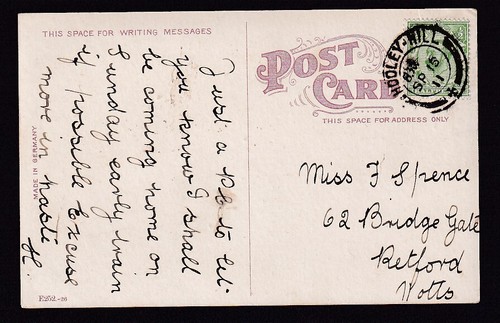 THIS SPACE FOR WRITING MESSAGES
Just a P.C. to let
you know I shall
be coming home on
Sunday early train
if possible Excuse
more in haste
H.
MADE IN GERMANY
E252.-20
POST
CARD
THIS SPACE FOR ADDRESS ONLY
HOOLEY-HILL
SP 15
11
Miss F Spence
62 Bridge Gate
Retford
Notts